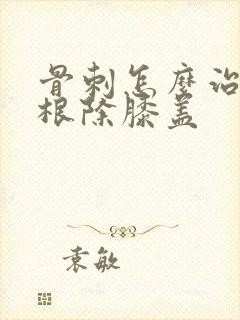 骨刺怎麼治
根除膝盖
袁敏